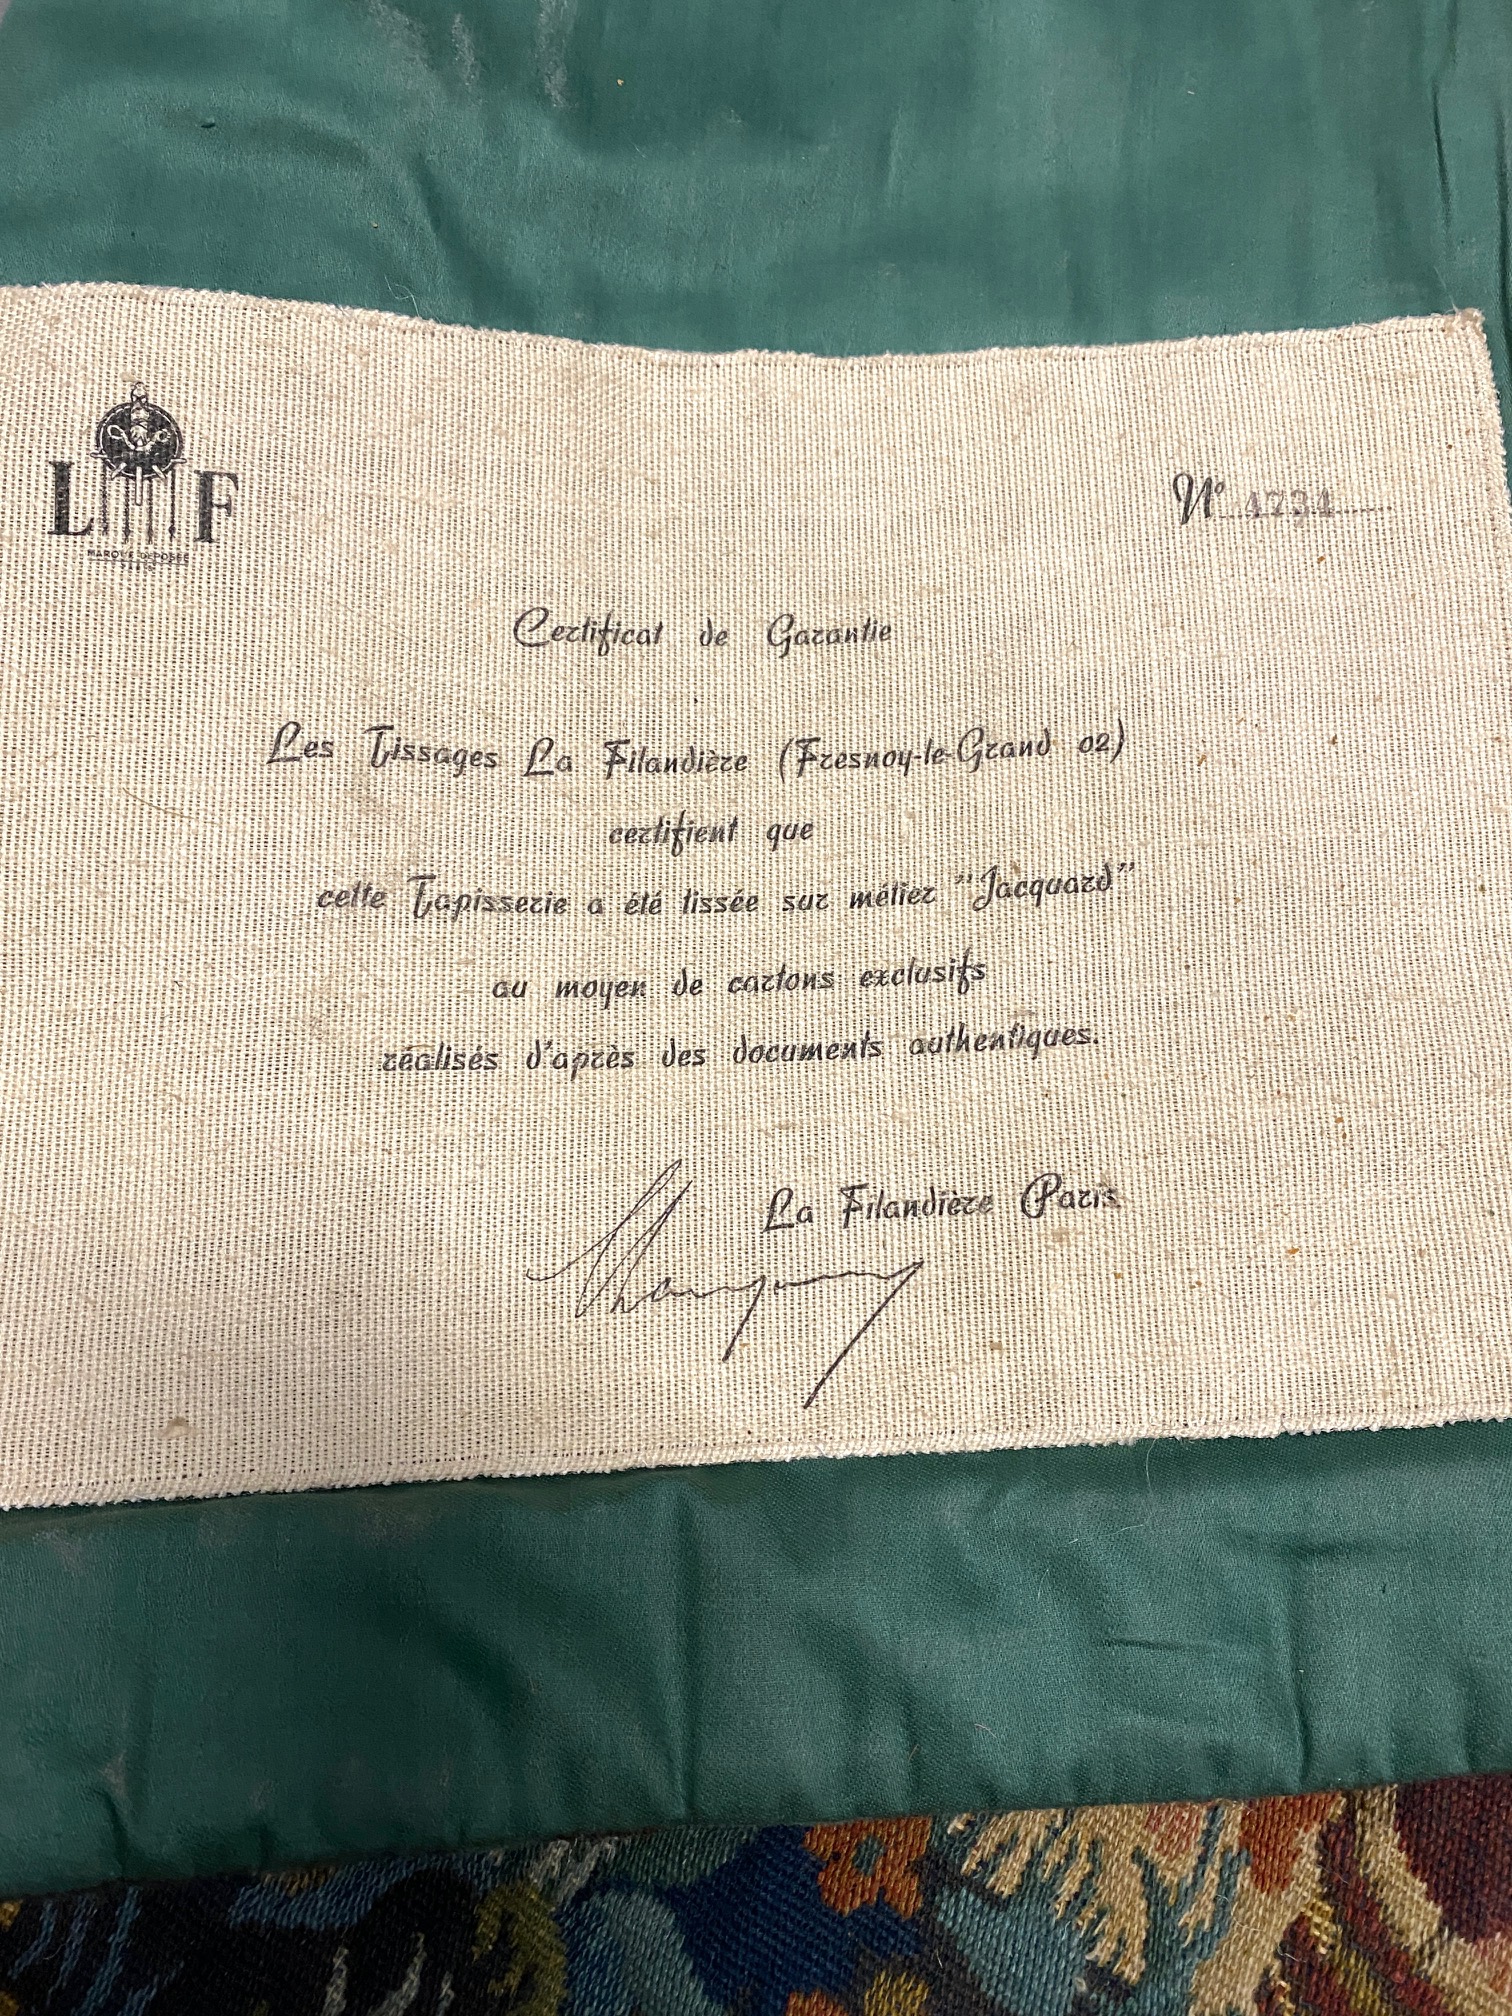 L F
MARQUE DEPOSÉE
N° 4734
Certificat de Garantie
Les Tissages La Filandière (Fresnoy-le-Grand 02)
certifient que
cette Tapisserie a été tissée sur métier "Jacquard"
au moyen de cartons exclusifs
réalisés d'après des documents authentiques.
La Filandière Paris